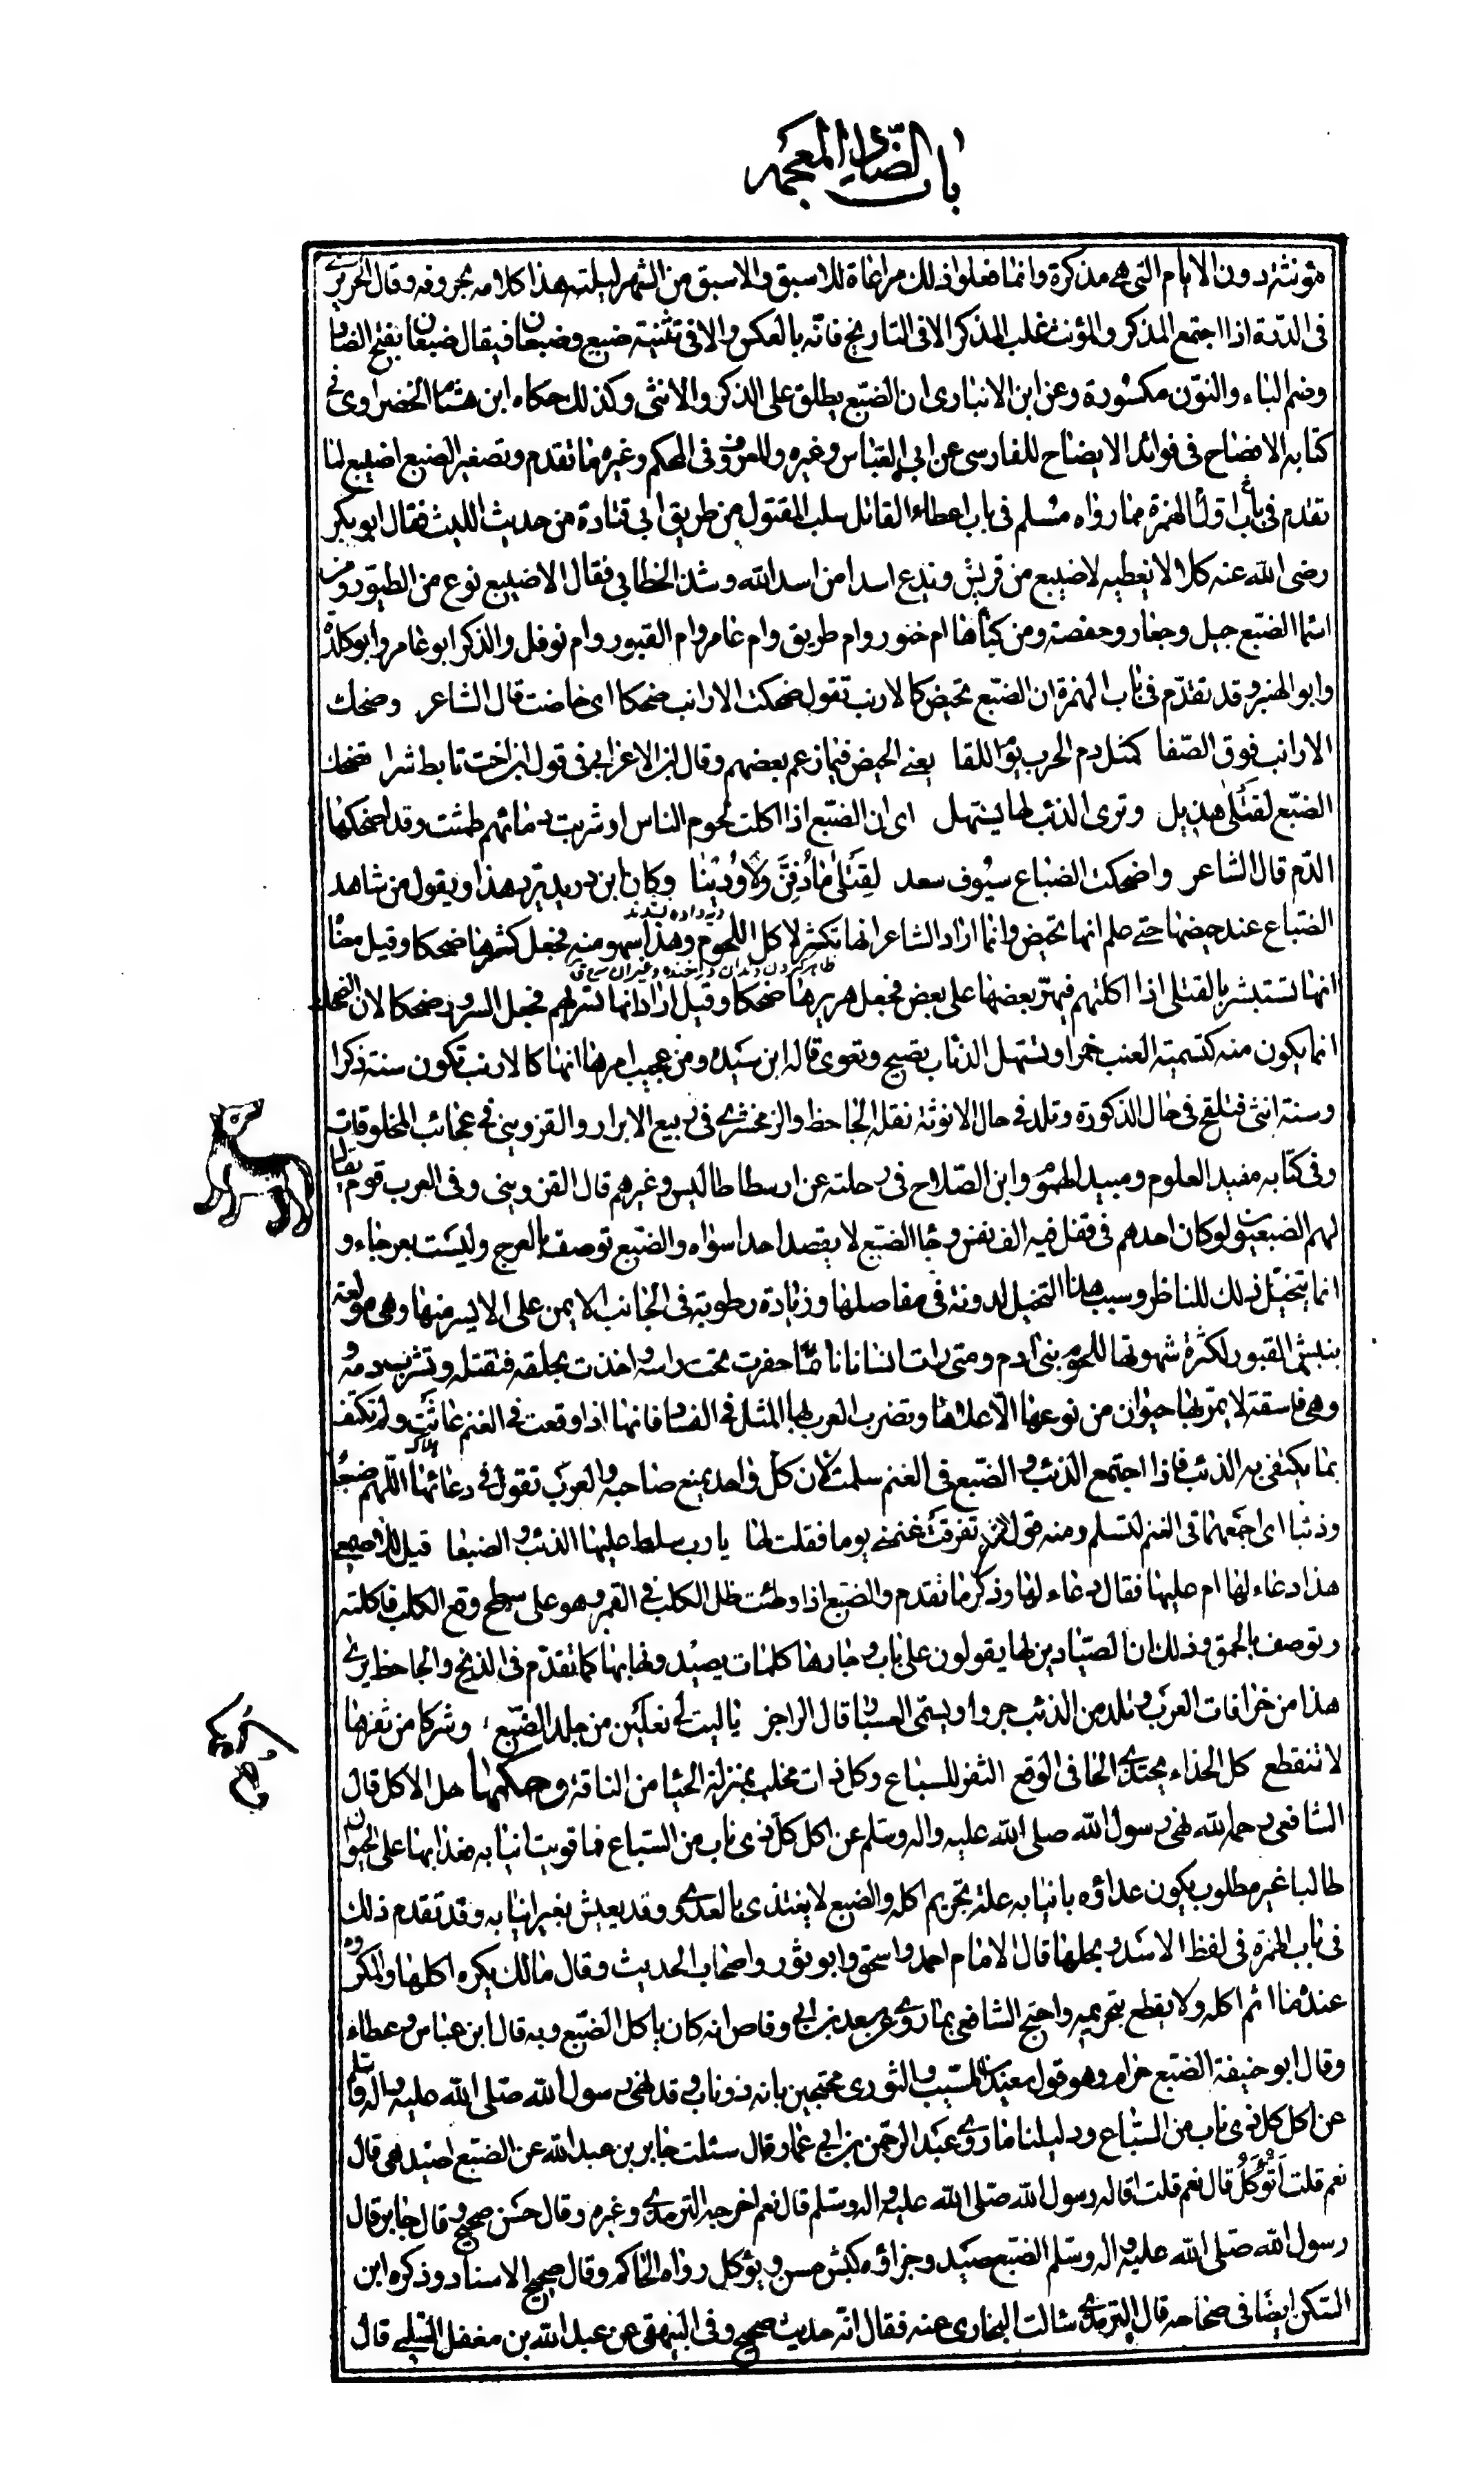 باب الضاد المعجمه
مؤنثة دون الايام التى هى مذكرة وانما فعلوا ذلك مراعاة للاسبق والاسبق من الشهر ليلته هذا كلامه بحروفه وقال الحريرى
فى الدرة اذا اجتمع المذكر والمؤنث غلب المذكر الا فى التاريخ فانه بالعكس والا فى تثنية ضبع وضبعان فيقال ضبعان بفتح الضاد
وضم الباء والنون مكسورة وعن ابن الانبارى ان الضبع يطلق على الذكر والانثى وكذلك حكاه ابن هشام الخضراوى فى
كتابه الافصاح فى فوائد الايضاح للفارسى عن ابى العباس وغيره والمعروف فى المحكم وغيره ما تقدم وتصغير الضبع اضيبع لما
تقدم فى باب اول الهمزة مما رواه مسلم فى باب اعطاء القاتل سلب المقتول من طريق ابى قتادة من حديث الليث فقال ابو بكر
رضى الله عنه كلا لا نعطيه لاضيبع من قريش وندع اسدا من اسد الله وشذ الخطابى فقال الاضيبع نوع من الطيور ومن
اسماء الضبع جيل وجعار وحفصة ومن كناها ام خنور وام طريق وام عامر وام القبور وام نوفل والذكر ابو عامر وابو كلدة
وابو الهنبر وقد تقدم فى باب الهمزة ان الضبع تحيض كالارنب تقول ضحكت الارانب ضحكا اى حاضت قال الشاعر وضحك
الارانب فوق الصفا كمثل دم الحرب يوم اللقا يعنى الحيض فيما زعم بعضهم وقال ابن الاعرابى فى قول ابن اخت تابط شرا تضحك
الضبع لقتلى هذيل وترى الذئب لها يستهل اى ان الضبع اذا اكلت لحوم الناس او شربت دمائهم طمثت وقد اضحكها
الدم قال الشاعر واضحكت الضباع سيوف سعد لقتلى ما دفن ولا ودينا وكان ابن دريد يرد هذا ويقول من شاهد
الضباع عند حيضها حتى علم انها تحيض وانما اراد الشاعر انها تكشر لاكل اللحوم وهذا سهو منه فجعل كشرها ضحكا وقيل معناه
انها تستبشر بالقتلى اذا اكلتهم فيهر بعضها على بعض فجعل هريرها ضحكا وقيل اراد انها تسر بهم فجعل السرور ضحكا لان الضحك
انما يكون منه كتسمية العنب خمرا ويستهل الذئاب تصيح وتعوى قاله ابن سيده ومن عجيب امرها انها كالارنب تكون سنة ذكرا
وسنة انثى فتلقح فى حال الذكورة وتلد فى حال الانوثة نقله الجاحظ والزمخشرى فى ربيع الابرار والقزوينى فى عجائب المخلوقات
وفى كتابه مفيد العلوم ومبيد الهموم وابن الصلاح فى رحلته عن ارسطاطاليس وغيرهم قال القزوينى وفى العرب قوم يقال
لهم الضبعيون لو كان احدهم فى قفل فيه الف نفس وجاء الضبع لا يقصد احدا سواه والضبع توصف بالعرج وليست بعرجاء و
انما يتخيل ذلك للناظر وسبب هذا التخيل لدونة فى مفاصلها وزيادة رطوبة فى الجانب الايمن على الايسر منها وهى مولعة
بنبش القبور لكثرة شهوتها للحوم بنى ادم ومتى رات انسانا نائما حفرت تحت راسه واخذت بحلقه فتقتله وتشرب دمه
وهى فاسقة لا يمر بها حيوان من نوعها الا علاها وتضرب العرب بها المثل فى الفساد فانها اذا وقعت فى الغنم عاثت ولم تكتف
بما يكتفى به الذئب فاذا اجتمع الذئب والضبع فى الغنم سلمت لان كل واحد يمنع صاحبه والعرب تقول فى دعائها اللهم ضبعا
وذئبا اى اجمعهما فى الغنم لتسلم ومنه قول تفرقت غنمى يوما فقلت لها يا رب سلط عليها الذئب والضبعا قيل للاصمعى
هذا دعاء لها ام عليها فقال دعاء لها وذكر ما تقدم والضبع اذا وطئت ظل الكلب فى القمر وهو على سطح وقع الكلب فاكلته
وتوصف بالحمق وذلك ان الصيادين لها يقولون على باب وجارها كلمات يصيدونها بها كما تقدم فى الذيخ والجاحظ يرى
هذا من خرافات العرب وتلد من الذئب جروا ويسمى العسبار قال الراجز يا ليت لى نعلين من جلد الضبع وشركا من ثفرها
لا تنقطع كل الحذاء يحتذى الحافى الوقع الثفر للسباع وكل ذات مخلب بمنزلة الحيا من الناقة وحكمها حل الاكل قال
الشافعى رحمه الله نهى رسول الله صلى الله عليه واله وسلم عن اكل كل ذى ناب من السباع فما قويت انيابه فعدا بها على الحيوان
طالبا غير مطلوب يكون عداؤه بانيابه علة تحريم اكله والضبع لا يغتذى بالعدوى وقد يعيش بغير انيابه وقد تقدم ذلك
فى باب الهمزة فى لفظ الاسد وبحلها قال الامام احمد واسحق وابو ثور واصحاب الحديث وقال مالك يكره اكلها والمكروه
عنده ما اثم اكله ولا يقطع بتحريمه واحتج الشافعى بما روى عن سعد بن ابى وقاص انه كان ياكل الضبع وبه قال ابن عباس وعطاء
وقال ابو حنيفة الضبع حرام وهو قول سعيد بن المسيب والثورى محتجين بانه ذو ناب وقد نهى رسول الله صلى الله عليه واله وسلم
عن اكل كل ذى ناب من السباع ودليلنا ما روى عبد الرحمن بن ابى عمار قال سئلت جابر بن عبد الله عن الضبع اصيد هى قال
نعم قلت اتؤكل قال نعم قلت اقاله رسول الله صلى الله عليه واله وسلم قال نعم اخرجه الترمذى وغيره وقال حسن صحيح وقال جابر قال
رسول الله صلى الله عليه واله وسلم الضبع صيد وجزاؤه كبش مسن ويؤكل رواه الحاكم وقال صحيح الاسناد وذكره ابن
السكن ايضا فى صحاحه قال الترمذى سالت البخارى عنه فقال انه حديث صحيح وفى البيهقى عن عبد الله بن مغفل السلمى قال